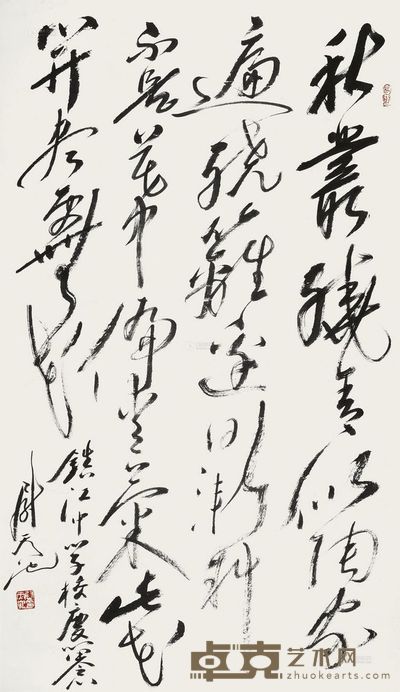 秋叢繞舍似陶家
遍繞籬邊日漸斜
不是花中偏愛菊此花
開盡更無花
鎮江中學校慶
尉天池
卓克艺术网
zhuokearts.com